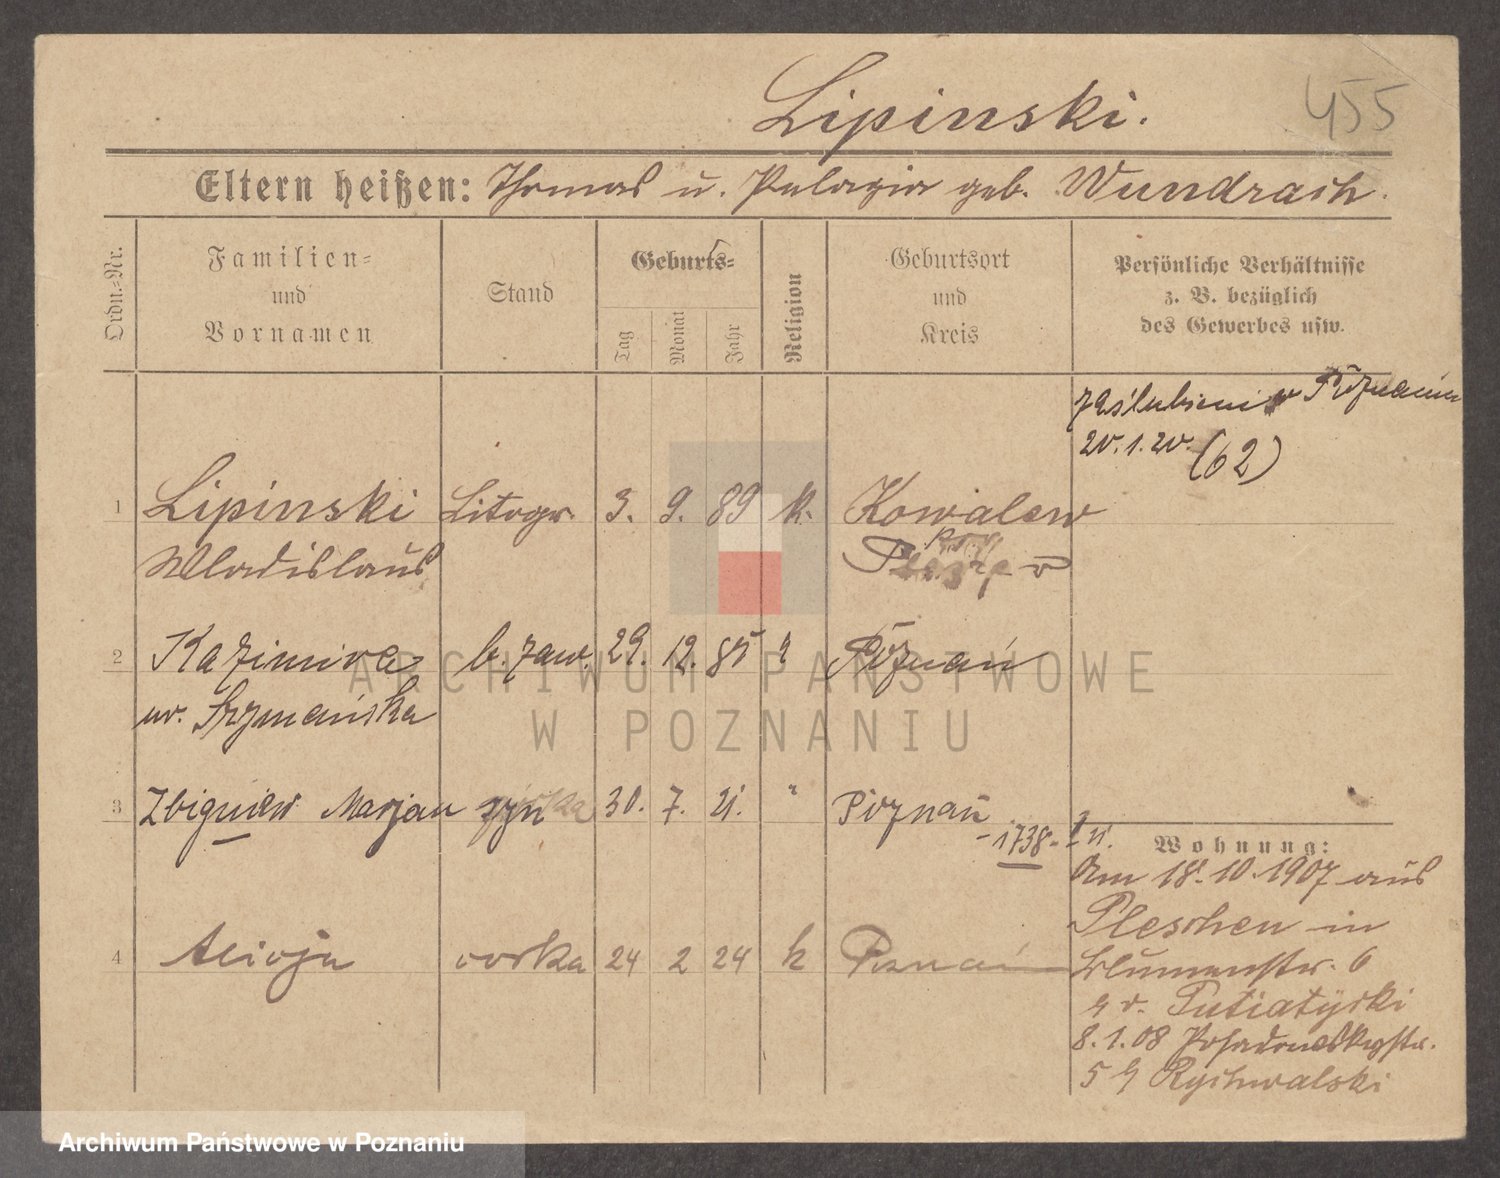 Lipinski.
455
Eltern heißen: Thomas u. Pelagia geb. Wundrach.
Ordn.-Nr.
Familien-
und
Vornamen
Stand
Geburts-
Tag
Monat
Jahr
Religion
Geburtsort
und
Kreis
Persönliche Verhältnisse
z. B. bezüglich
des Gewerbes usw.
zaślubieni w Poznaniu
20.1.20. (62)
1 Lipinski Litogr. 3. 9. 89 k. Kowalew
Wladislaus
2 Kazimira b. zaw. 29. 12. 85 Poznań
ur. Szymańska
3 Zbigniew Marjan syn 30. 7. 21. " Poznań
-1738-
Wohnung:
Am 18.10.1907 aus
Pleschen in
Blumenstr. 6
Putiatycki
8.1.08 Posadowskystr.
5 Rychwalski
4 Alicja córka 24 2 24 k Poznań
ARCHIWUM PAŃSTWOWE
W POZNANIU
Archiwum Państwowe w Poznaniu